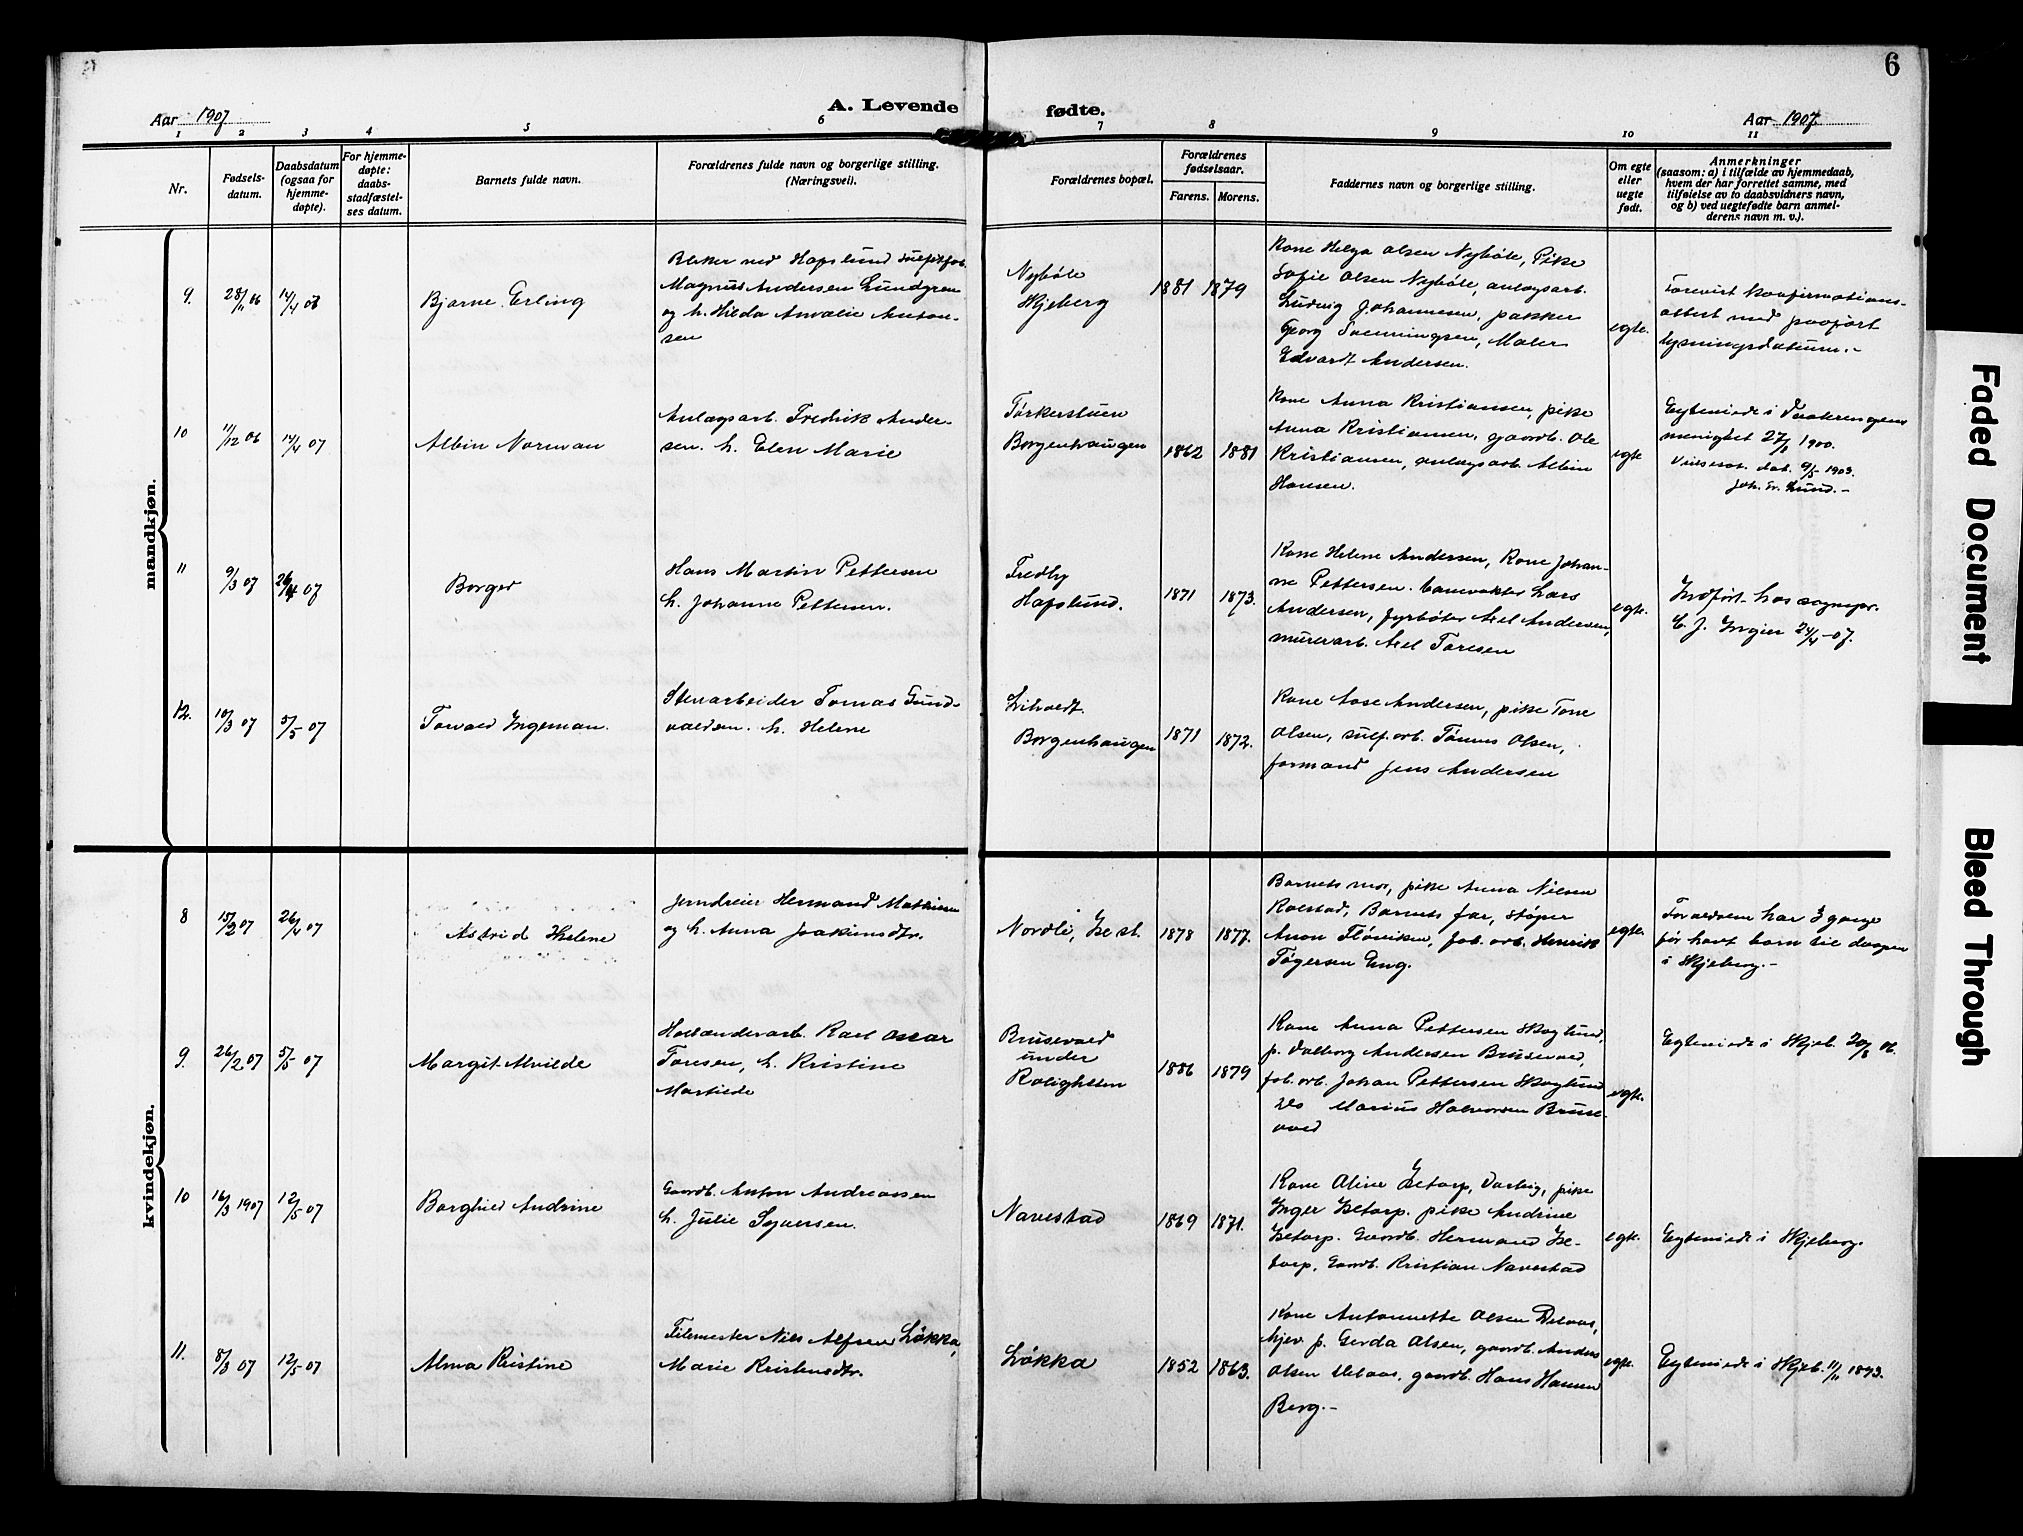 6
A. Levende
fødte.
Aar 1907
Aar 1907.
1 2 3 4 5 6 7 8 9 10 11
Nr.
Fødsels-
datum.
Daabsdatum
(ogsaa for
hjemme-
døpte).
For hjemme-
døpte:
daabs-
stadfæstel-
ses datum.
Barnets fulde navn.
Forældrenes fulde navn og borgerlige stilling.
(Næringsvei).
Forældrenes bopæl.
Forældrenes
fødselsaar.
Farens. Morens.
Faddernes navn og borgerlige stilling.
Om egte
eller
uegte
født.
Anmerkninger
(saasom: a) i tilfælde av hjemmedaab,
hvem der har forrettet samme, med
tilføielse av to daabsvidners navn,
og b) ved uegtefødte barn anmel-
derens navn m. v.).
mandkjøn.
9.
28/11 06
14/4
Bjarne Erling
ved Hafslund
Magnus Andersen Lundgren
og h. Hilda Amalie Anton-
sen
Nybøle
Skjeberg
1881
1879
Kone Helga Olsen Nybøle, Pike
Sofie Olsen Nybøle, anlægsarb.
Ludvig Johannesen, pakker
Georg Svenningsen, Maler
Edvart Andersen.
egte.
Forevist konfirmations-
attest med paaført
lysningsdatum.-
10
11/12 06
14/4 07
Albin Norman
Anlægsarb. Fredrik Ander-
sen. h. Elen Marie
Tørkerstuen
Borgenhaugen
1862
1881
Kone Anna Kristiansen, pike
Anna Kristiansen, gaardb. Ole
Kristiansen, anlægsarb. Albin
Hansen.
egte
Egteviede i Vaalerengens
menighet 1900.
Vielsesat. dat. 9/5 1903.
Joh. Lund.-
11
9/3 07
26/4 07
Borger
Hans Martin Pettersen
h. Johanne Pettersen.
Fredby
Hafslund.
1871
1873.
Kone Helene Andersen, Kone Johan-
ne Pettersen. banevokter Lars
Andersen, fyrbøter Axel Andersen,
murerarb. Axel Toresen
egte.
Indført hos sognepr.
C. J. Ingier 24/4-07.
12.
10/3 07
5/5 07
Torvald Ingeman.
Stenarbeider Tomas Gund-
valdsen. h. Helene
Lihvedt.
Borgenhaugen
1871
1872.
Kone Aase Andersen, pike Tone
Olsen, sulf. arb. Tønnes Olsen,
formand Jens Andersen
kvindekjøn.
8
15/2 07
26/4 07
Astrid Helene
Jerndreier Hermand Mathisen
og h. Anna Joakimsdtr.
Nordli,
1878
1877.
Barnets mor, pike Anna Nilsen
Rolstad, Barnets far, støper
fab. arb. Henrik
Tøgersen Eng.
egte.
Forældrene har 3 gange
før havt barn til daapen
i Skjeberg.-
9.
26/2 07
5/5 07
Margit Alvilde
Hollænderarb. Karl Oscar
Toresen, h. Kristine
Martilde
Brusevold
under
Rolighten
1886
1879
Kone Anna Pettersen Skoglund,
p. Valborg Andersen Brusevold,
fab. arb. Johan Pettersen Skoglund
Marius Halvorsen Bruse-
vold
egte.
Egteviede i Skjeb. 20/8 06.
10
16/3 1907
12/5 07
Borghild Andrine
Gaardb. Anton Andreassen
h. Julie Syversen.
Navestad
1869
1871.
Kone Aline Isetorp, Varteig, pike
Inger Isetorp. pike Andrine
Isetorp. Gaardb. Hermand Ise-
torp, Gaardb. Kristian Navestad
egte.
Egteviede i Skjeberg.
11.
8/3 07
12/5 07
Alma Kristine
Filemester Nils Alfsen Løkka,
Marie Kristensdtr.
Løkka
1852
1863.
Kone Antonnette Olsen
hjev. p. Gerda Olsen, gaardb. Anders
Olsen gaardb. Hans Hansen
Berg.-
egte.
Egteviede i Skjeb. 11/11 1893.
Faded Document
Bleed Through